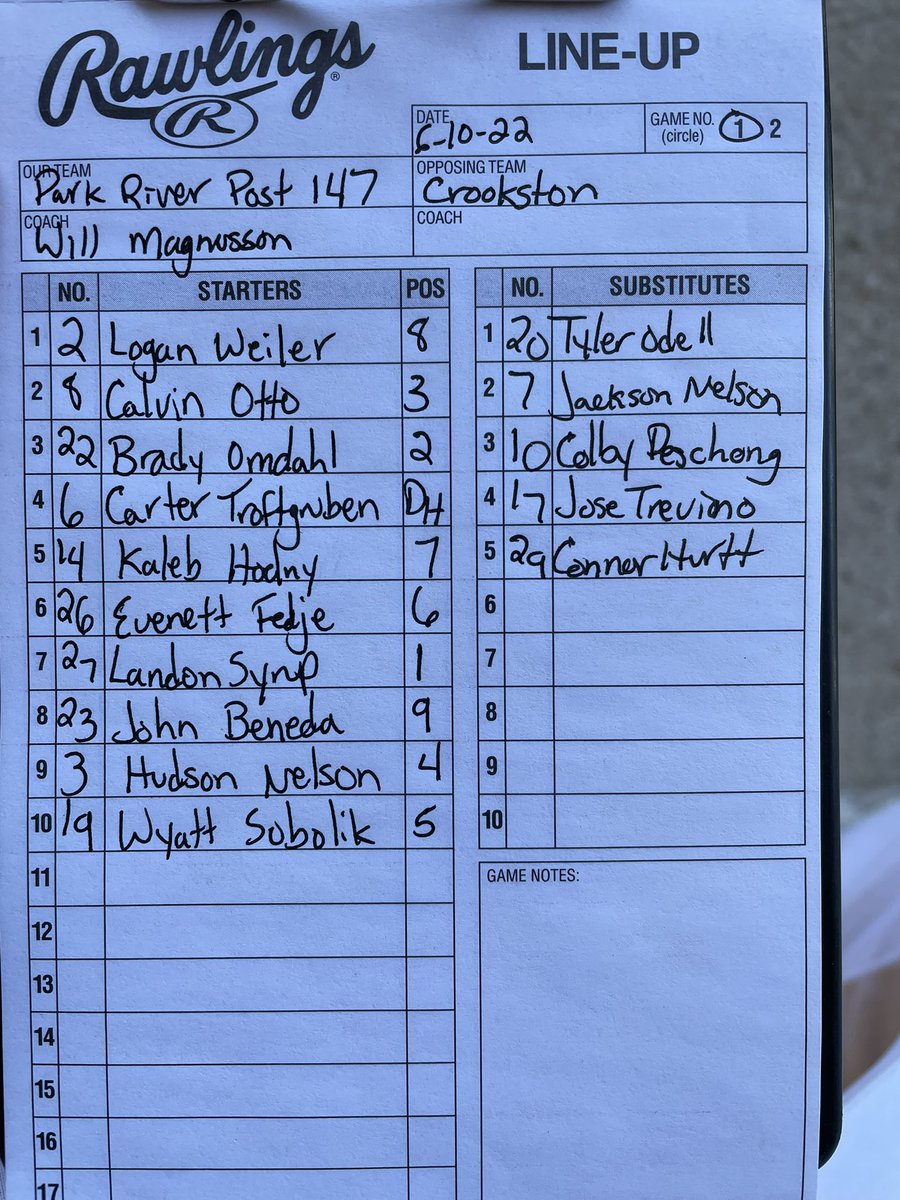 Rawlings ®
R
LINE-UP
DATE 6-10-22
GAME NO. (circle) 1 2
OUR TEAM Park River Post 147
OPPOSING TEAM Crookston
COACH Will Magnusson
COACH
NO. STARTERS POS
1 2 Logan Weiler 8
2 8 Calvin Otto 3
3 22 Brady Omdahl 2
4 6 Carter Troftgruben DH
5 14 Kaleb Hodny 7
6 26 Everett Fedje 6
7 27 Landon Syrup 1
8 23 John Beneda 9
9 3 Hudson Nelson 4
10 19 Wyatt Sobolik 5
11
12
13
14
15
16
17
NO. SUBSTITUTES
1 20 Tyler Odell
2 7 Jackson Nelson
3 10 Colby Peschong
4 17 Jose Trevino
5 29 Connor Hurtt
6
7
8
9
10
GAME NOTES: